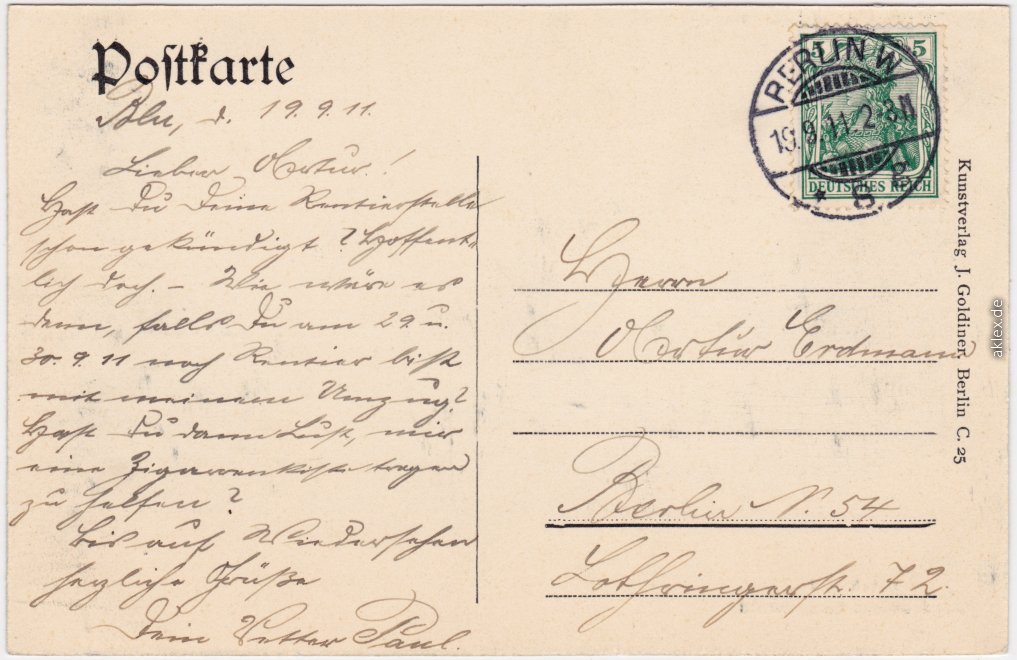 Postkarte
Bln, d. 19.9.11.
Lieber Artur!
Hast Du Deine Rentierstelle
schon gekündigt? Hoffent-
lich doch. – Wie wäre es
denn, falls Du am 29. u.
30.9.11 noch Rentier bist
mit meinem Umzug?
Hast Du dann Lust, mir
eine Zigarrenkiste tragen
zu helfen?
Bis auf Wiedersehen
herzliche Grüße
Dein Vetter Paul.
5 5
DEUTSCHES REICH
BERLIN W
19.9.11.2-3N
* 8
Herrn
Artur Erdmann
Berlin N. 54
Lothringerstr. 72.
Kunstverlag J. Goldiner, Berlin C. 25
aklex.de